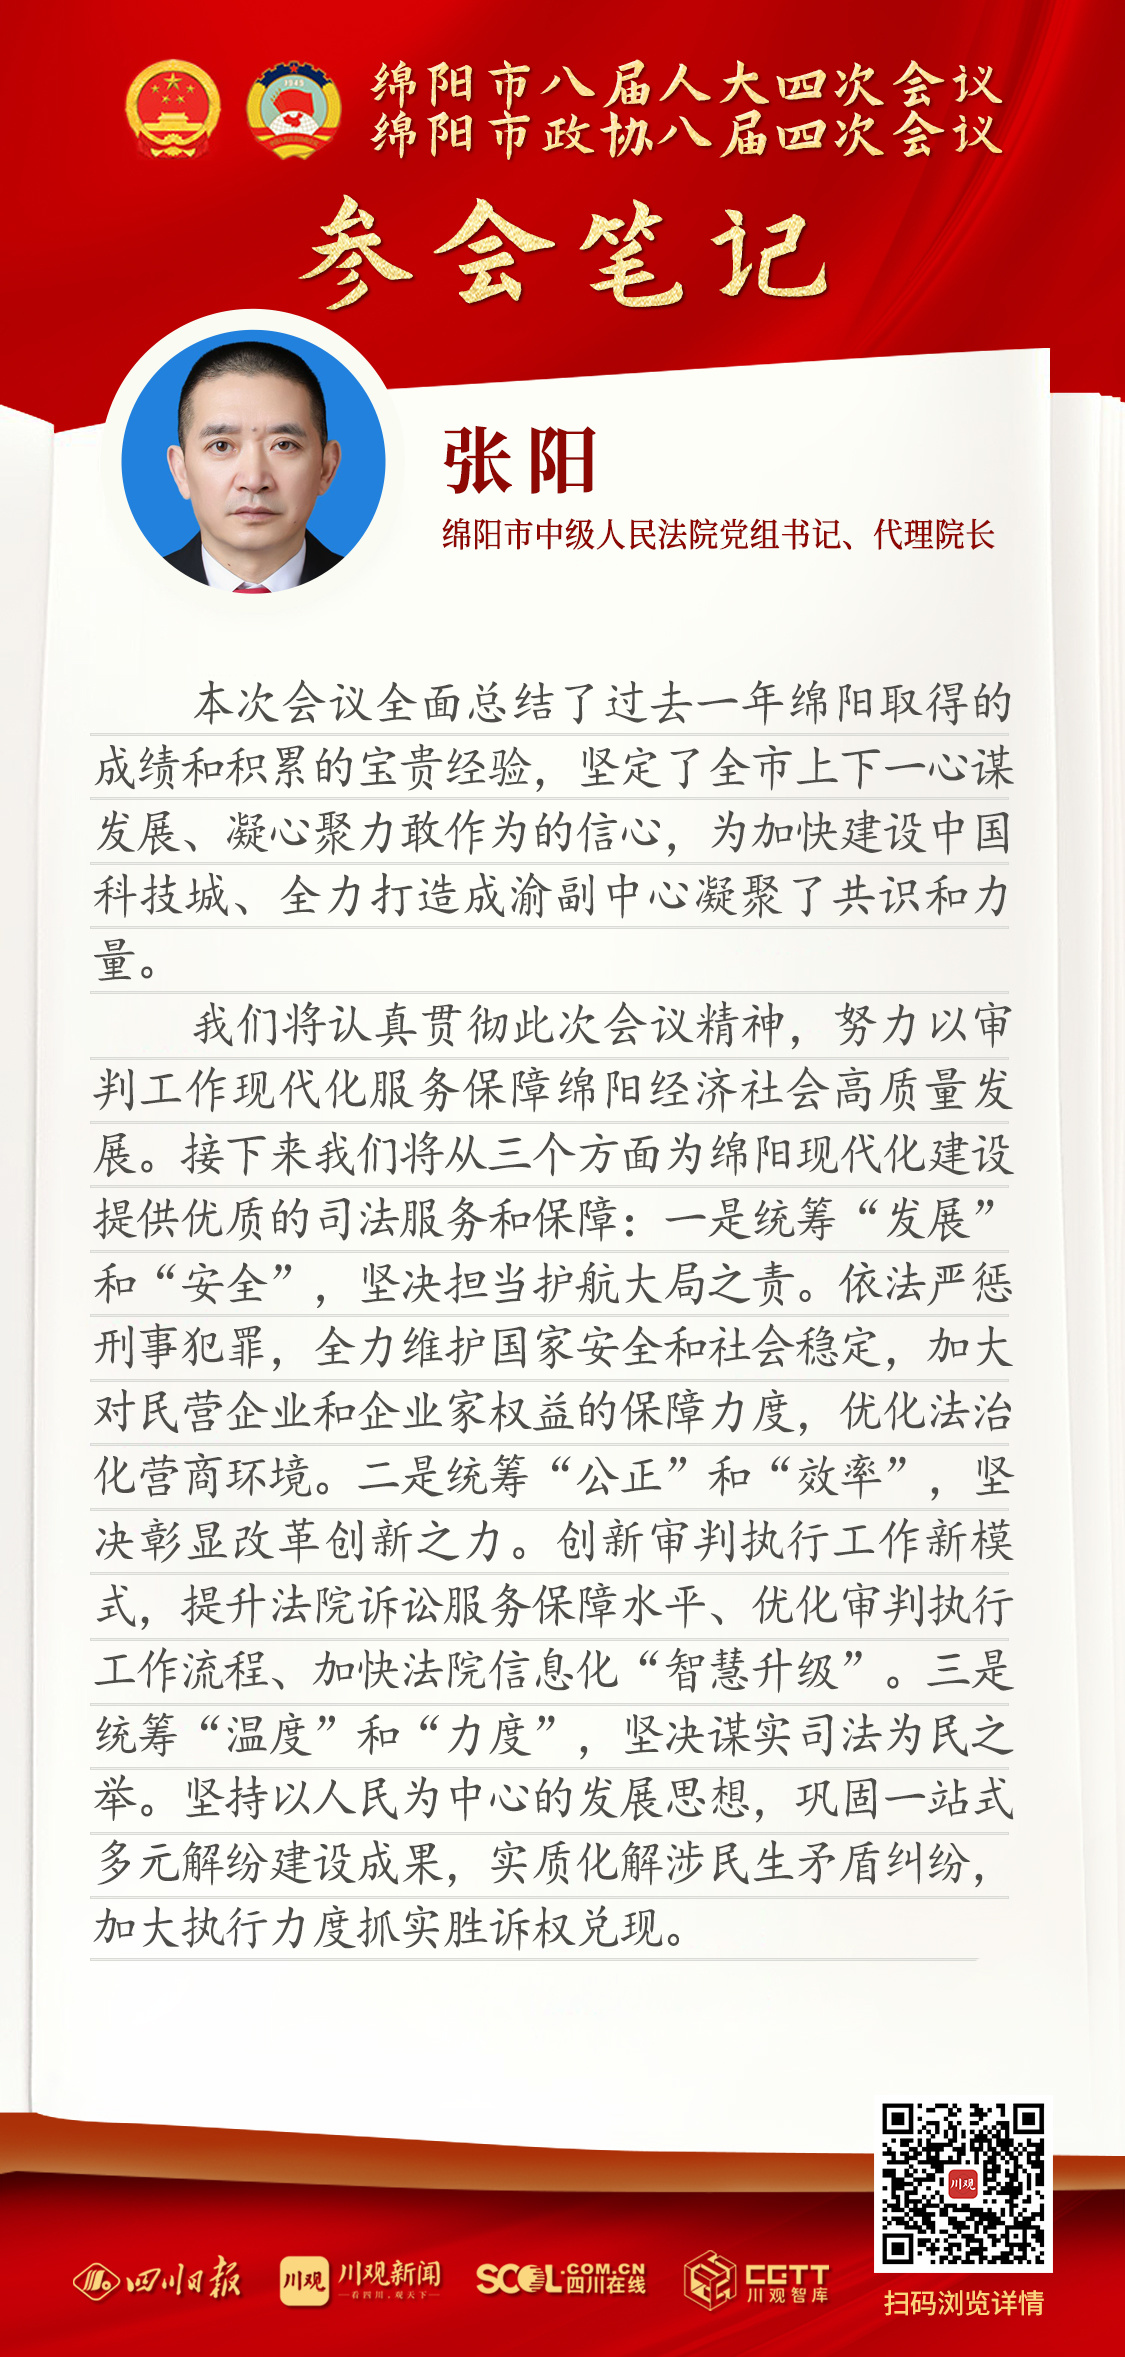 绵阳市八届人大四次会议
绵阳市政协八届四次会议
参会笔记
张阳
绵阳市中级人民法院党组书记、代理院长
本次会议全面总结了过去一年绵阳取得的
成绩和积累的宝贵经验，坚定了全市上下一心谋
发展、凝心聚力敢作为的信心，为加快建设中国
科技城、全力打造成渝副中心凝聚了共识和力
量。
我们将认真贯彻此次会议精神，努力以审
判工作现代化服务保障绵阳经济社会高质量发
展。接下来我们将从三个方面为绵阳现代化建设
提供优质的司法服务和保障：一是统筹“发展”
和“安全”，坚决担当护航大局之责。依法严惩
刑事犯罪，全力维护国家安全和社会稳定，加大
对民营企业和企业家权益的保障力度，优化法治
化营商环境。二是统筹“公正”和“效率”，坚
决彰显改革创新之力。创新审判执行工作新模
式，提升法院诉讼服务保障水平、优化审判执行
工作流程、加快法院信息化“智慧升级”。三是
统筹“温度”和“力度”，坚决谋实司法为民之
举。坚持以人民为中心的发展思想，巩固一站式
多元解纷建设成果，实质化解涉民生矛盾纠纷，
加大执行力度抓实胜诉权兑现。
川观
四川日报
川观
川观新闻
看四川，观天下
SCOL.COM.CN
四川在线
CGTT
川观智库
扫码浏览详情